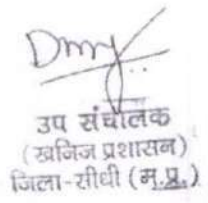 उप संचालक
(खनिज प्रशासन)
जिला-सीधी (म.प्र.)